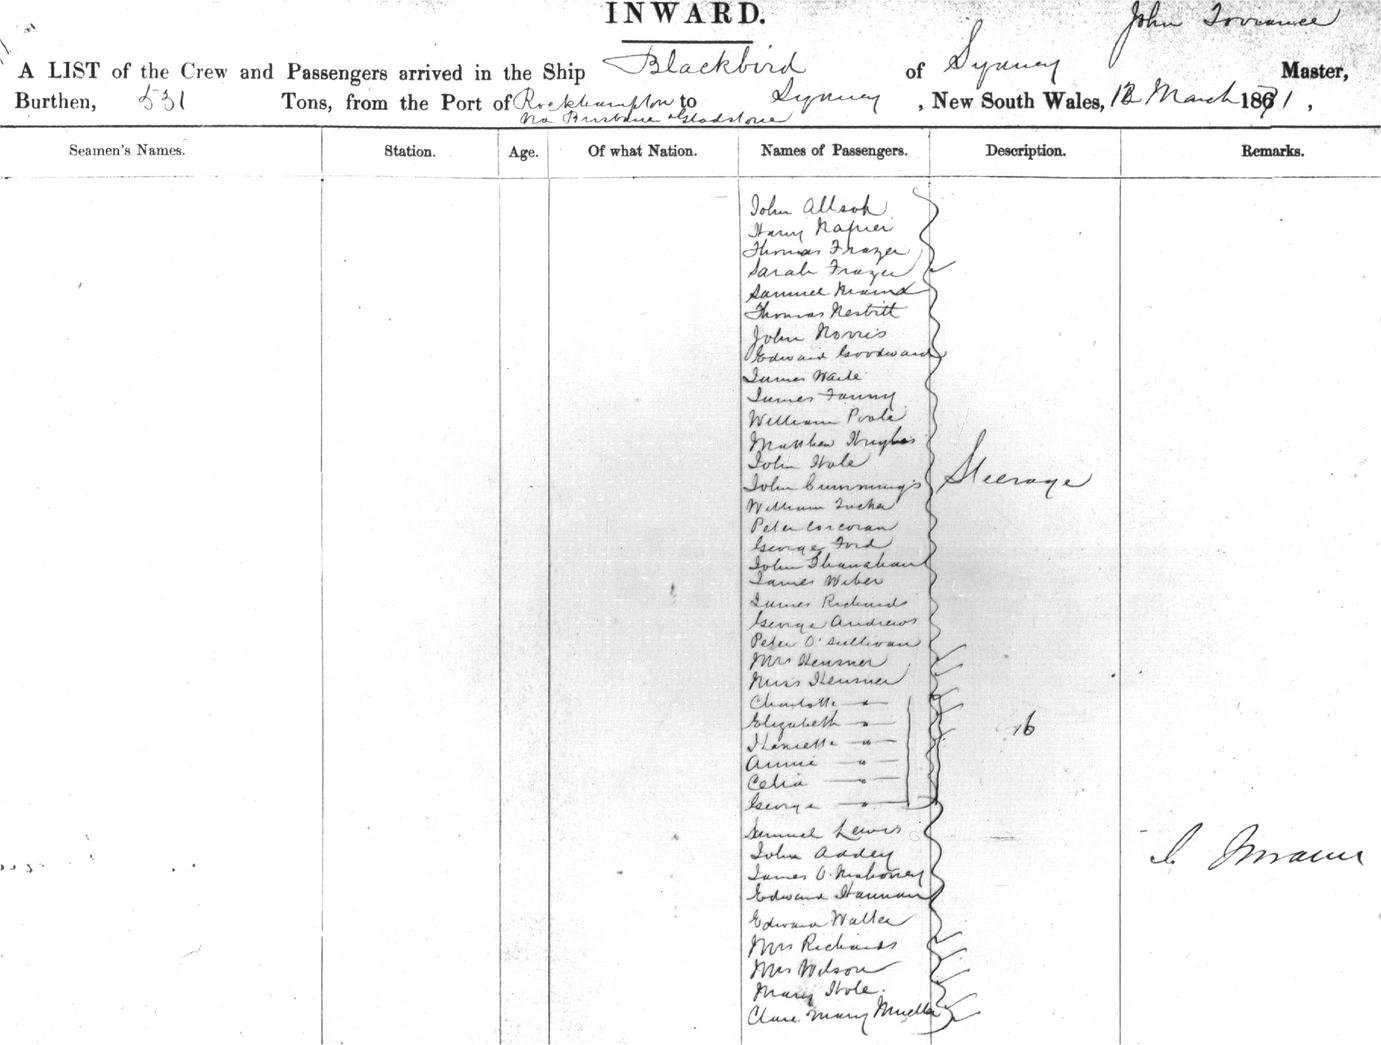 INWARD.
John Torrance
A LIST of the Crew and Passengers arrived in the Ship Blackbird of Sydney Master,
Burthen, 531 Tons, from the Port of Rockhampton to Sydney , New South Wales, 12 March 1871 ,
via Brisbane & Gladstone
Seamen's Names. Station. Age. Of what Nation. Names of Passengers. Description. Remarks.
John Allsoh
Harry Napier
Thomas Frazer
Sarah Frazer
Samuel
Thomas Nesbitt
John Norris
Edward Goodward
James Waile
James Fanny
William Poole
Matthew Hughes
John Hole
Steerage
John Cummings
William Tucker
Peter Corcoran
George Ford
John Shanahan
James Weber
James Richards
George Andrews
Peter O'Sullivan
Mrs Heusner
Miss Heusner
Charlotte "
Elizabeth "
16
Henrietta "
Annie "
Celia "
George "
Samuel Lewis
John Addey
J. Torrance
James O.Mahoney
Edward Hannan
Edward Waller
Mrs Richards
Mrs Wilson
Mary Hole.
Clare Mary Mueller